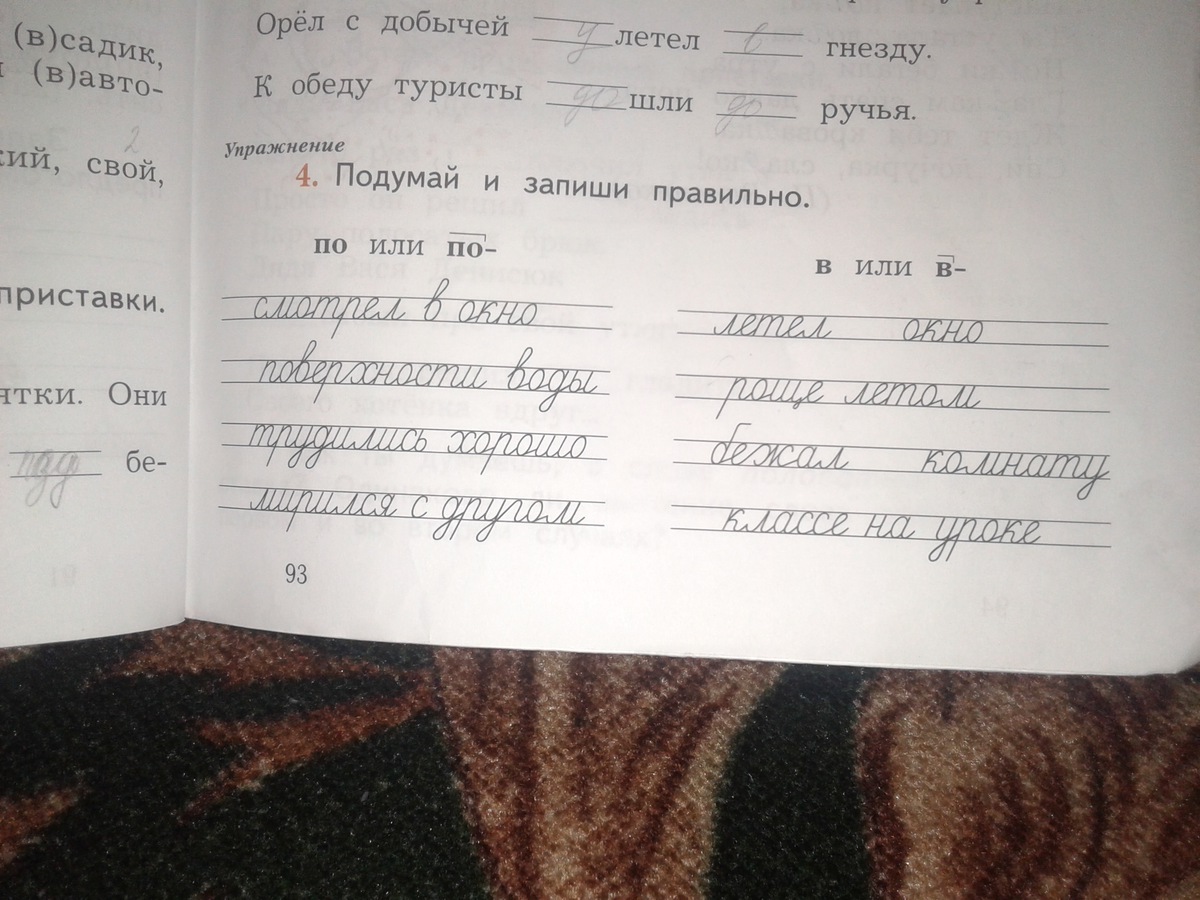 (в)садик,
(в)авто-
кий, свой,
приставки.
ятки. Они
над бе-
Орёл с добычей у летел в гнезду.
К обеду туристы до шли до ручья.
Упражнение
4. Подумай и запиши правильно.
по или по-
смотрел в окно
поверхности воды
трудились хорошо
мирился с другом
в или в-
летел окно
роще летом
бежал комнату
классе на уроке
93